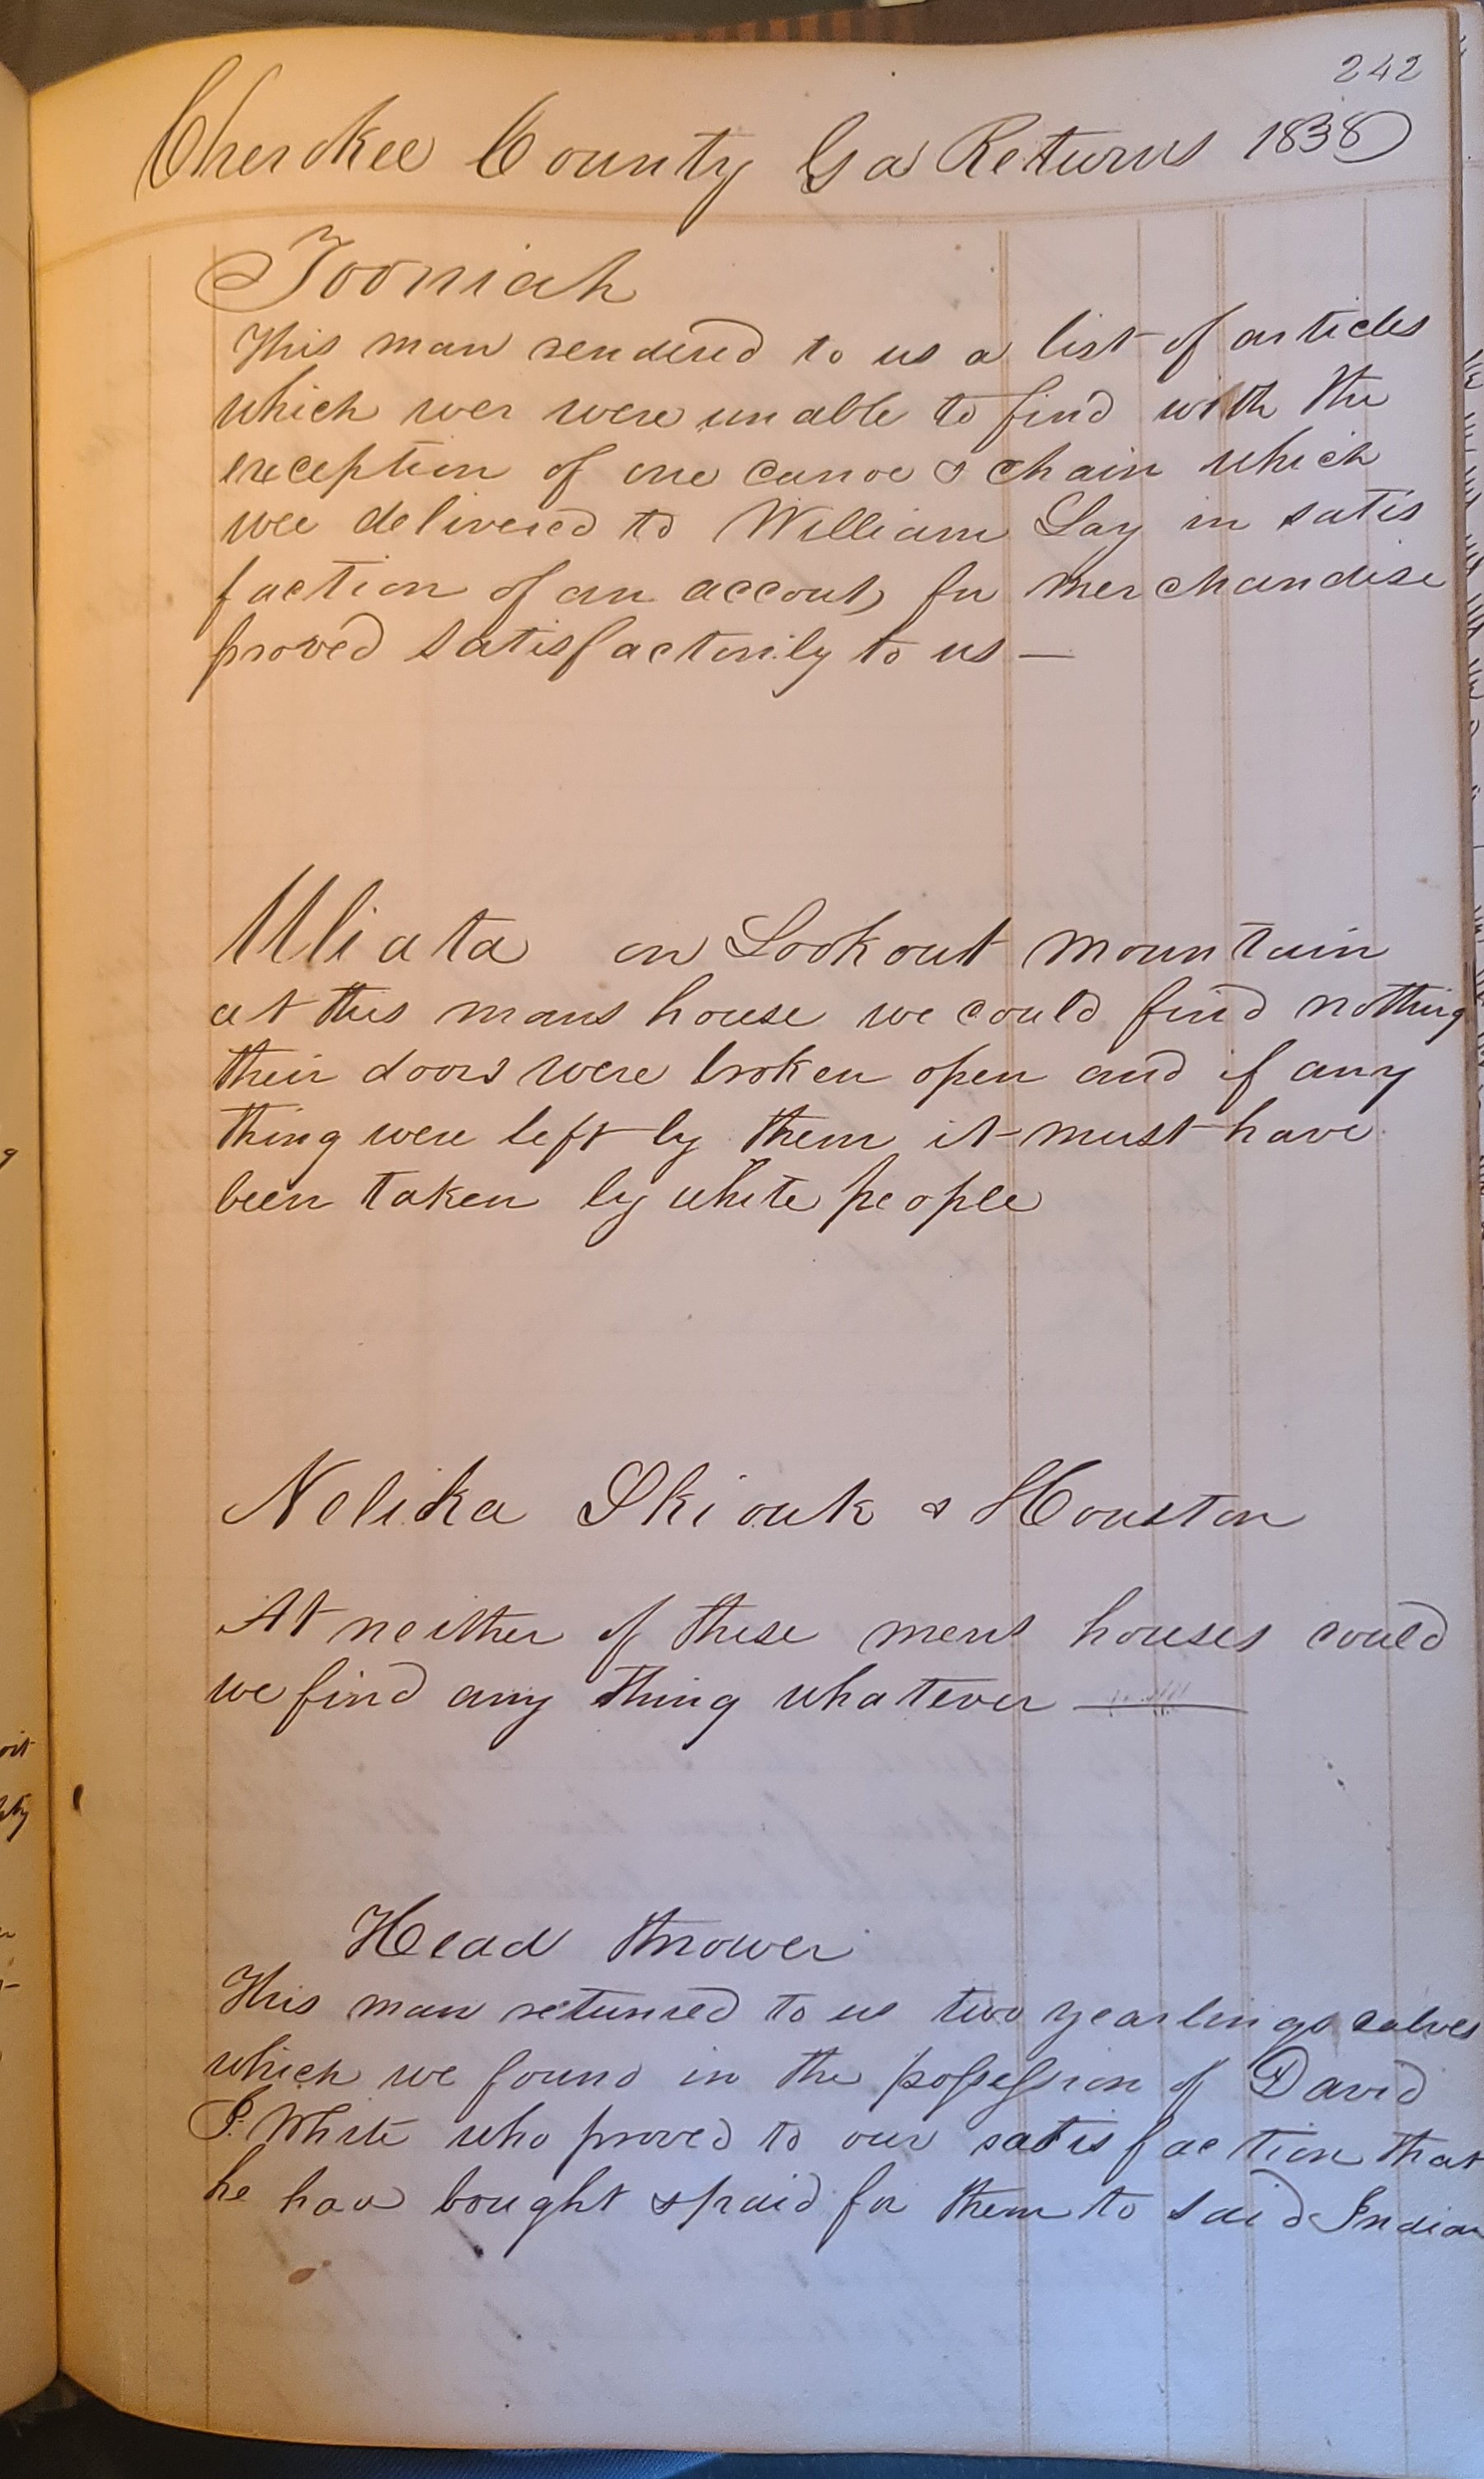 242
Cherokee County Ga Returns 1838
Tooniah
This man rendered to us a list of articles
which wer were unable to find with the
exception of one canoe & chain which
wee delivered to William Lay in satis
faction of an accout, for merchandise
proved satisfactorily to us —
Uliata on Lookout Mountain
at this mans house we could find nothing
their doors were broken open and if any
thing were left by them it must have
been taken by white people
Nelika Skiouk & Houston
At neither of these mens houses could
we find any thing whatever —
Head thrower
This man returned to us two yearlings calves
which we found in the possession of David
S. White who proved to our satisfaction that
he had bought & paid for them to said Indian